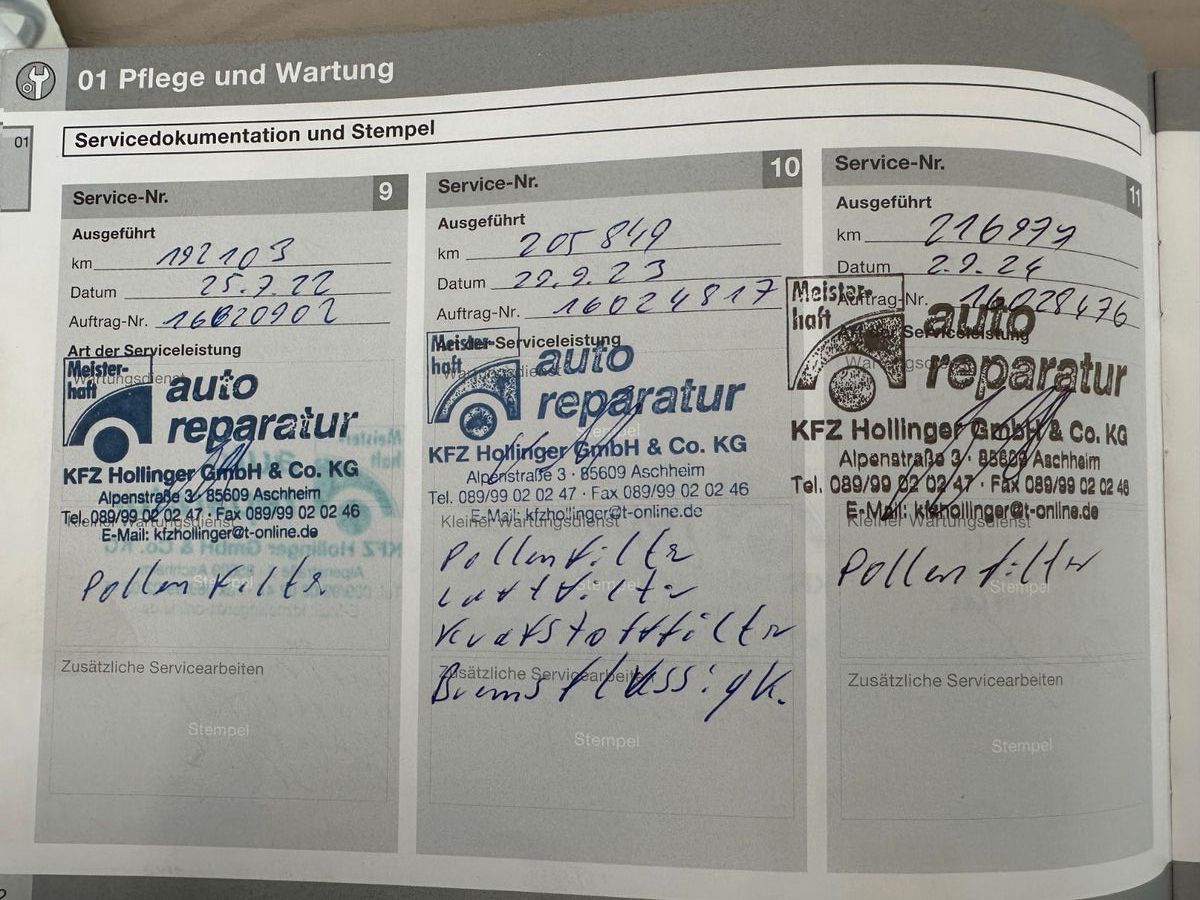 01 Pflege und Wartung
01
Servicedokumentation und Stempel
Service-Nr. 9
Ausgeführt
km 192103
Datum 25.7.22
Auftrag-Nr. 16020902
Art der Serviceleistung
Wartungsdienst
Meister-
haft
auto
reparatur
KFZ Hollinger GmbH & Co. KG
Alpenstraße 3 · 85609 Aschheim
Tel. 089/99 02 02 47 · Fax 089/99 02 02 46
Kleiner Wartungsdienst
E-Mail: kfzhollinger@t-online.de
Stempel
Pollenfilter
Zusätzliche Servicearbeiten
Stempel
Service-Nr. 10
Ausgeführt
km 205849
Datum 29.9.23
Auftrag-Nr. 16024817
Art der Serviceleistung
Wartungsdienst
Meister-
haft
auto
reparatur
Stempel
KFZ Hollinger GmbH & Co. KG
Alpenstraße 3 · 85609 Aschheim
Tel. 089/99 02 02 47 · Fax 089/99 02 02 46
E-Mail: kfzhollinger@t-online.de
Kleiner Wartungsdienst
Pollenfilter
Stempel
Luftfilter
Kraftstofffilter
Zusätzliche Servicearbeiten
Bremsflüssigk.
Stempel
Service-Nr. 11
Ausgeführt
km 216979
Datum 2.9.24
Auftrag-Nr. 16028476
Art der Serviceleistung
Meister-
haft
auto
reparatur
KFZ Hollinger GmbH & Co. KG
Alpenstraße 3 · 85609 Aschheim
Tel. 089/99 02 02 47 · Fax 089/99 02 02 46
E-Mail: kfzhollinger@t-online.de
Kleiner Wartungsdienst
Pollenfilter
Stempel
Zusätzliche Servicearbeiten
Stempel